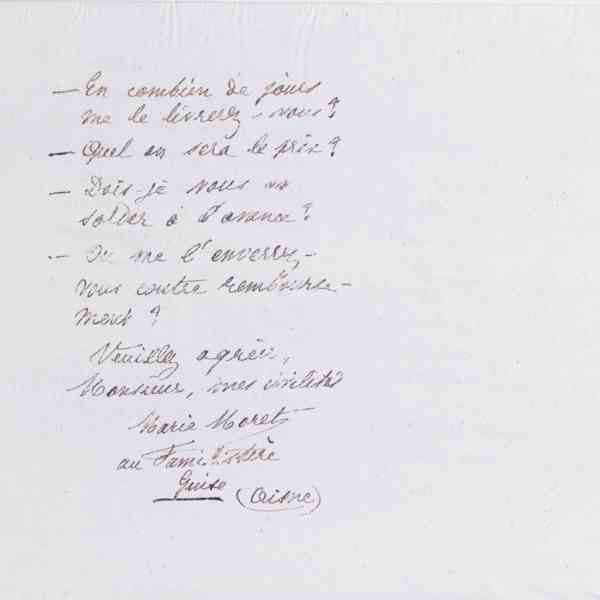 — En combien de jours
me le livrerez-vous ?
— Quel en sera le prix ?
— Dois-je vous en
solder à l'avance ?
— Ou me l'enverrez-
vous contre rembourse-
ment ?
Veuillez agréer,
Monsieur, mes civilités
Marie Moret
au Familistère
Guise (Aisne)